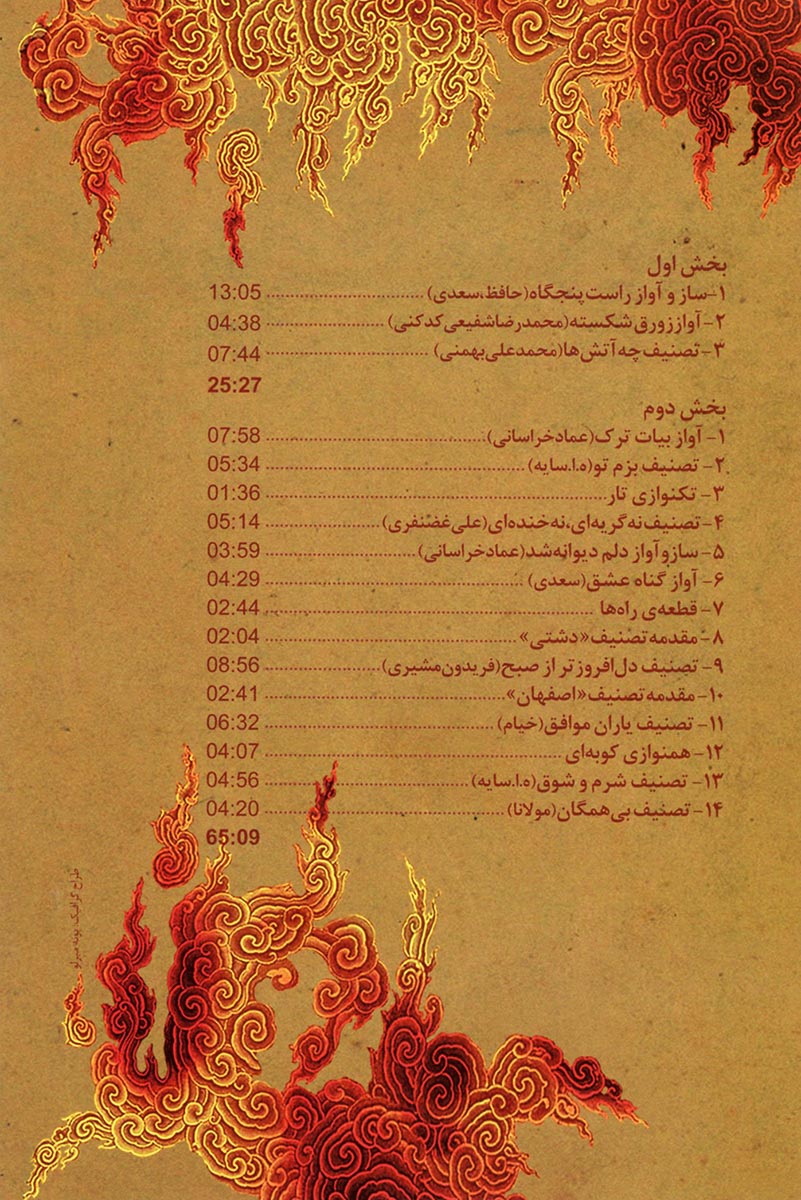 بخش اول
۱-ساز و آواز راست پنجگاه(حافظ،سعدی) ........................... 13:05
۲- آواز زورق شکسته(محمدرضاشفیعی کدکنی) ........................... 04:38
۳- تصنیف چه آتش ها(محمدعلی بهمنی) ........................... 07:44
25:27
بخش دوم
۱- آواز بیات ترک(عمادخراسانی) ........................... 07:58
۲- تصنیف بزم تو(ه.ا.سایه) ........................... 05:34
۳- تکنوازی تار ........................... 01:36
۴- تصنیف نه گریه ای،نه خنده ای(علی غضنفری) ........................... 05:14
۵- سازوآواز دلم دیوانه شد(عمادخراسانی) ........................... 03:59
۶- آواز گناه عشق(سعدی) ........................... 04:29
۷- قطعه‌ی راه‌ها ........................... 02:44
۸- مقدمه تصنیف«دشتی» ........................... 02:04
۹- تصنیف دل‌افروزتر از صبح(فریدون مشیری) ........................... 08:56
۱۰- مقدمه تصنیف«اصفهان» ........................... 02:41
۱۱- تصنیف یاران موافق(خیام) ........................... 06:32
۱۲- همنوازی کوبه‌ای ........................... 04:07
۱۳- تصنیف شرم و شوق(ه.ا.سایه) ........................... 04:56
۱۴- تصنیف بی‌همگان(مولانا) ........................... 04:20
65:09
طراح گرافیک: پونه میرلو